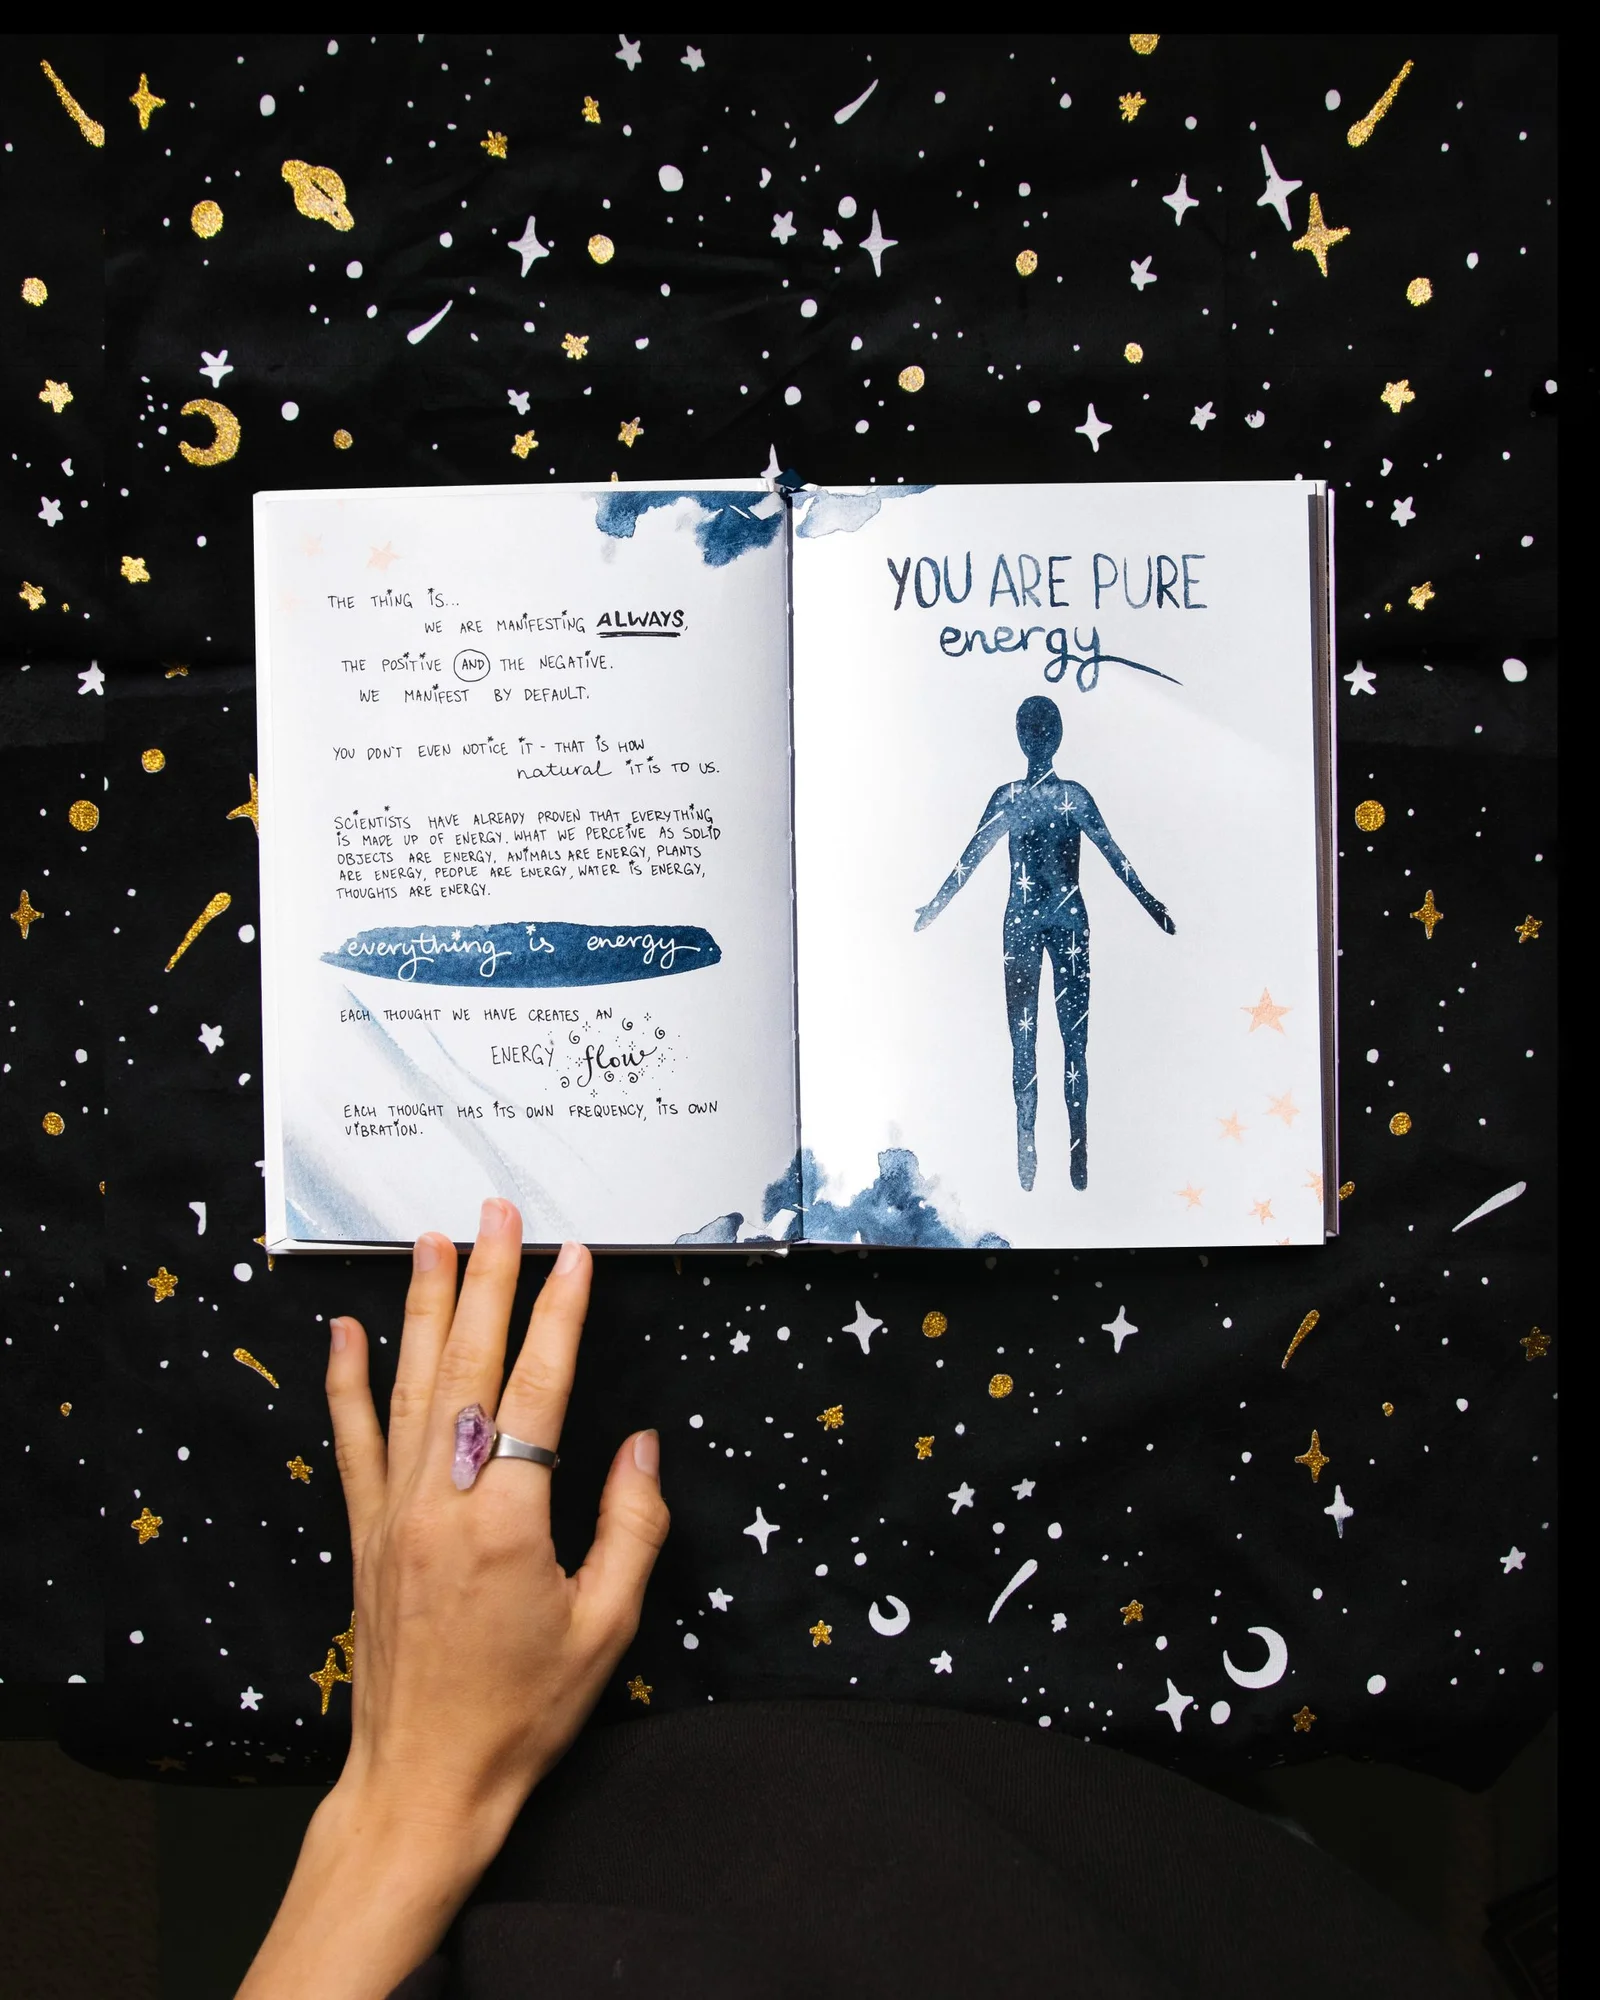 THE THING IS...
WE ARE MANIFESTING ALWAYS,
THE POSITIVE AND THE NEGATIVE.
WE MANIFEST BY DEFAULT.
YOU DON'T EVEN NOTICE IT - THAT IS HOW
natural IT IS TO US.
SCIENTISTS HAVE ALREADY PROVEN THAT EVERYTHING
IS MADE UP OF ENERGY. WHAT WE PERCEIVE AS SOLID
OBJECTS ARE ENERGY, ANIMALS ARE ENERGY, PLANTS
ARE ENERGY, PEOPLE ARE ENERGY, WATER IS ENERGY,
THOUGHTS ARE ENERGY.
everything is energy.
EACH THOUGHT WE HAVE CREATES AN
ENERGY flow
EACH THOUGHT HAS ITS OWN FREQUENCY, ITS OWN
VIBRATION.
YOU ARE PURE
energy